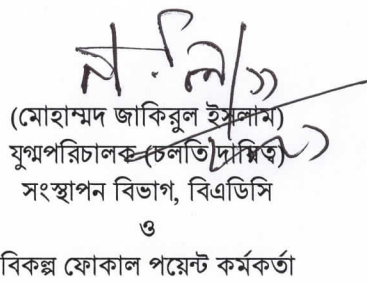 (মোহাম্মদ জাকিরুল ইসলাম)
যুগ্মপরিচালক (চলতি দায়িত্ব)
সংস্থাপন বিভাগ, বিএডিসি
ও
বিকল্প ফোকাল পয়েন্ট কর্মকর্তা